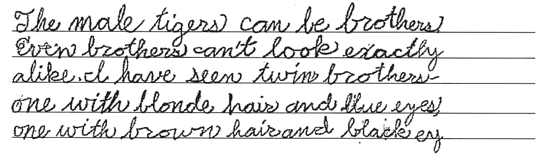 The male tigers can be brothers.
Even brothers can't look exactly
alike. I have seen twin brothers-
one with blonde hair and blue eyes,
one with brown hair and black ey